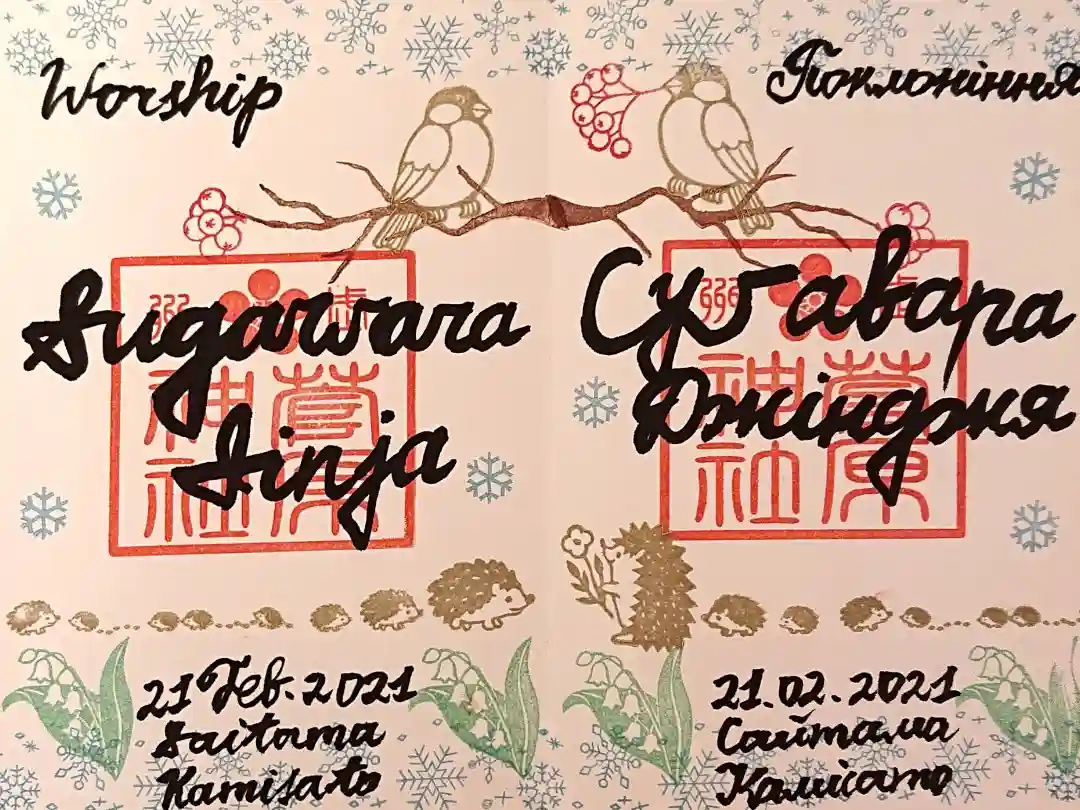 Worship
Sugawara
Sinja
菅原
神社
21 Feb. 2021
Saitama
Kamisato
Поклоніння
Суґавара
Джінджя
菅原
神社
21.02.2021
Сайтама
Камісато